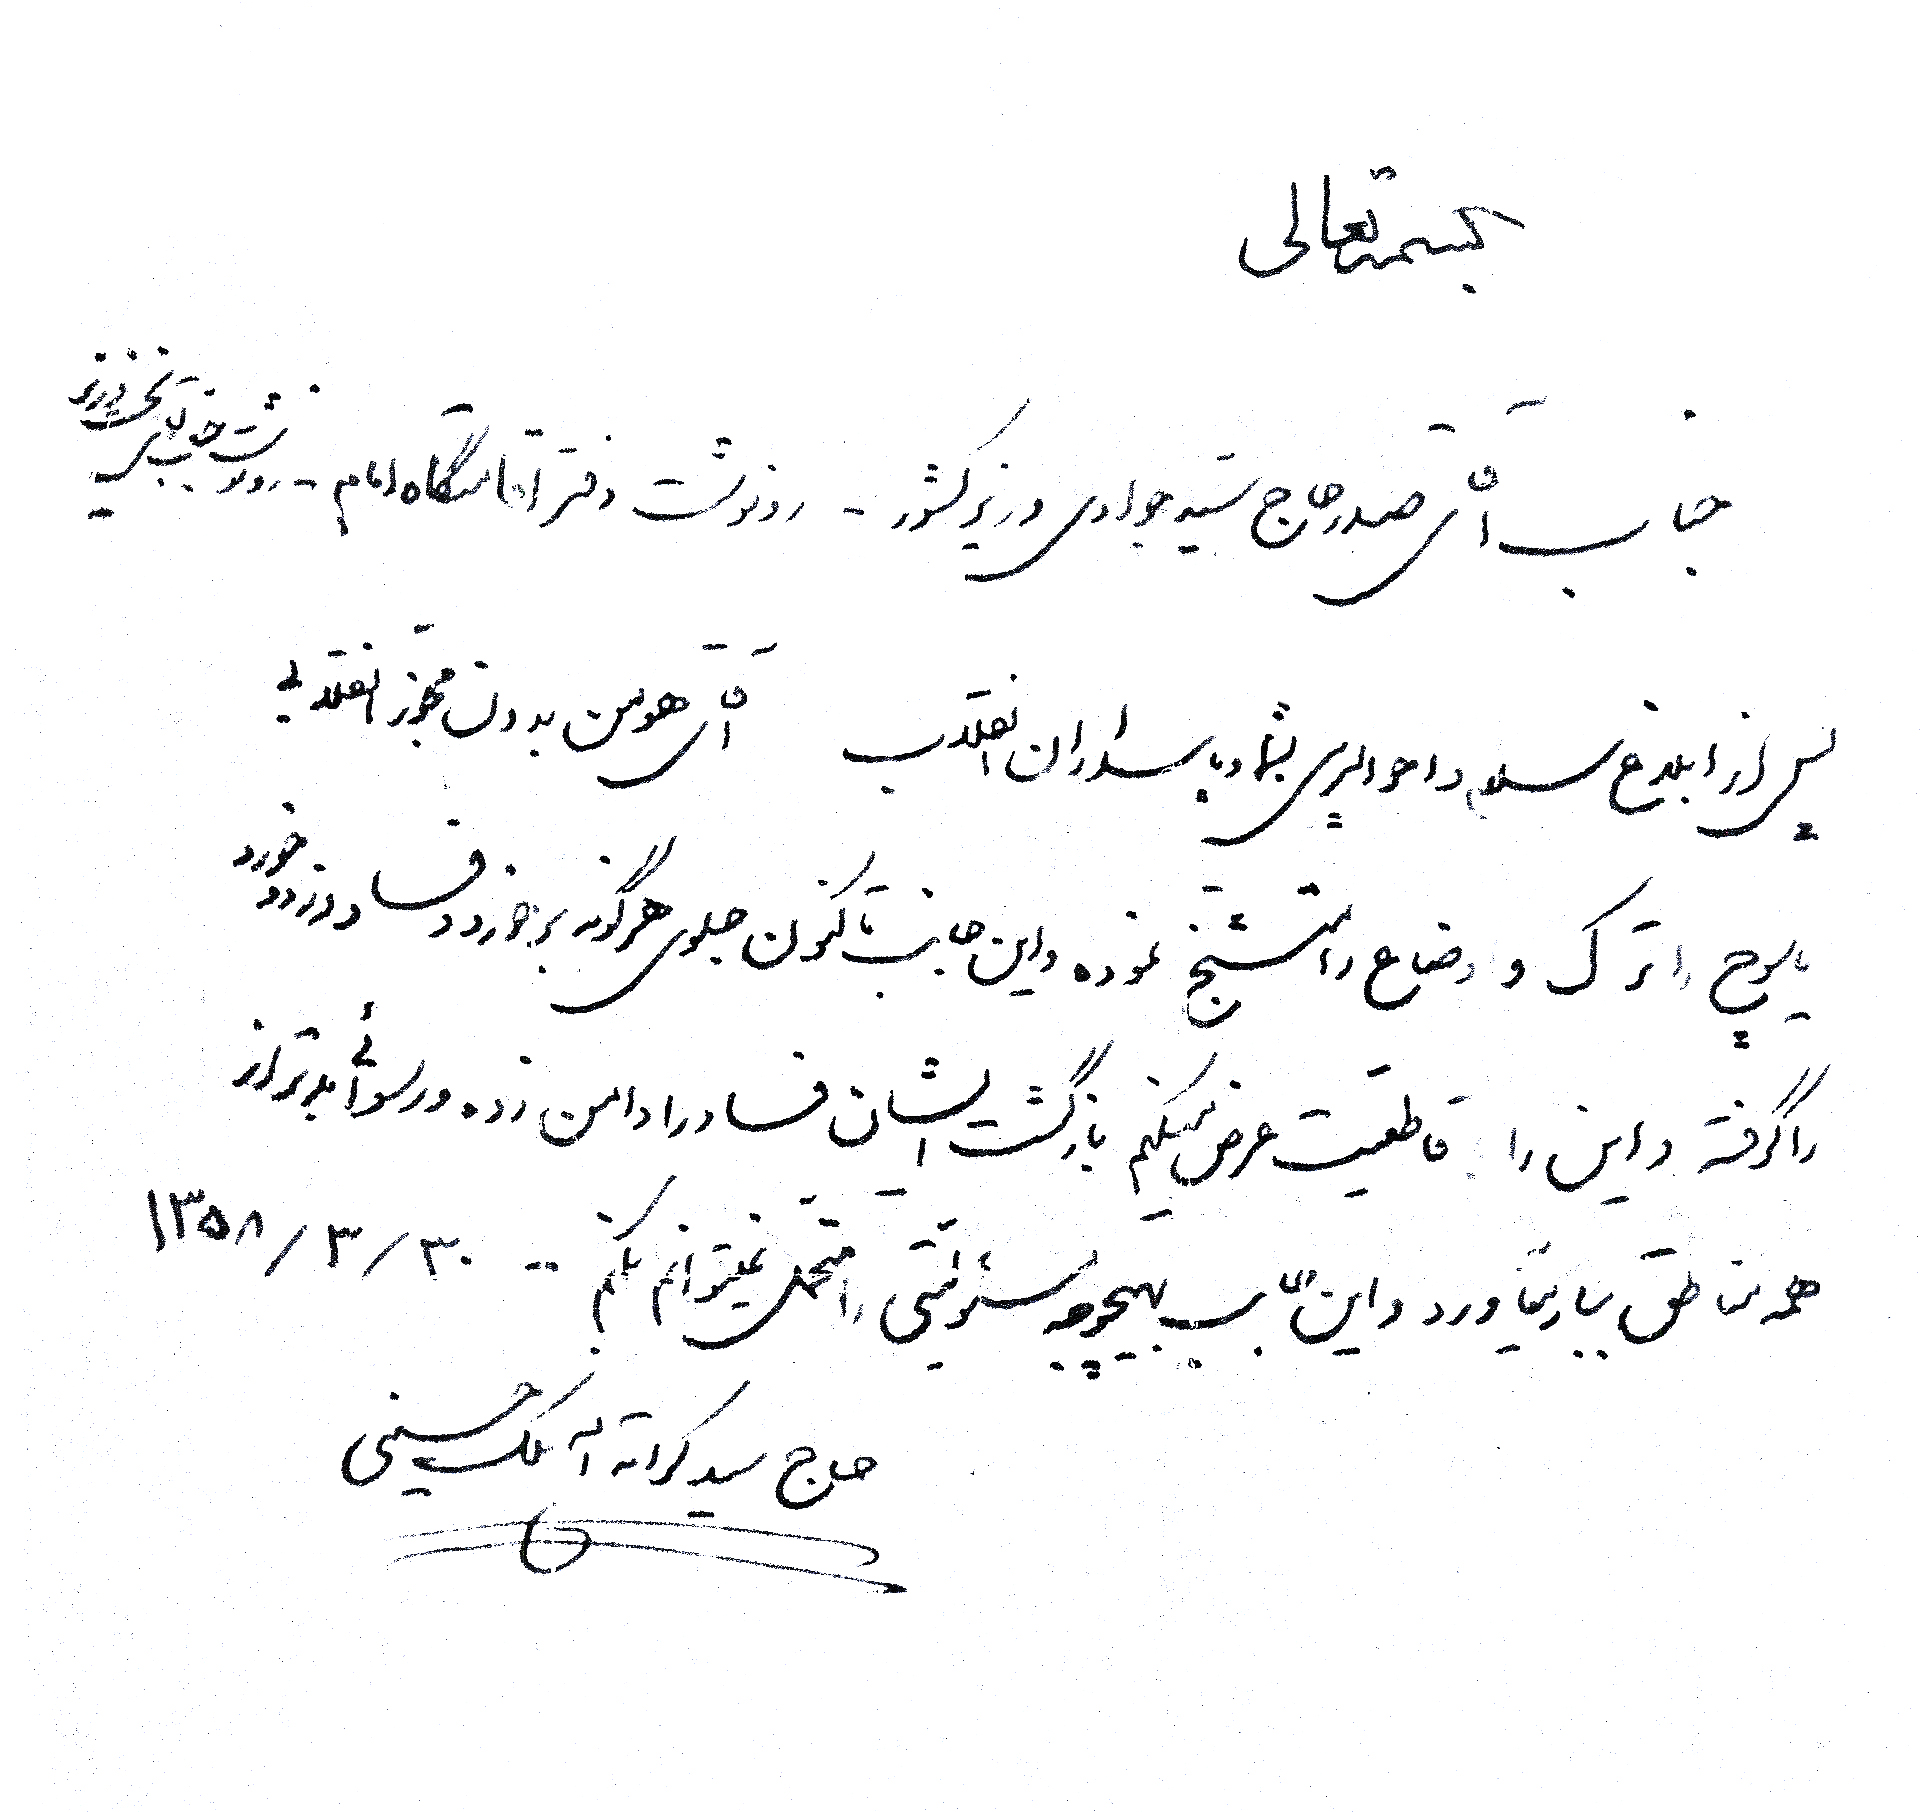 بسمه تعالی
جناب آقای صدر حاج سید جوادی وزیر کشور - رونوشت دفتر اقامتگاه امام - رونوشت جناب آقای نخست وزیر
پس از ابلاغ سلام و احوالپرسی بشما و پاسداران انقلاب آقای هومن بدون مجوز انقلابی
یاسوج را ترک و اوضاع را متشنج نموده و این جانب تاکنون جلوی هرگونه برخورد و فساد و زد و خورد
را گرفته و این را قاطعیت عرض میکنم بازگشت ایشان فساد را دامن زده و رسوائی بدتر از
همه مناطق ببار میآورد و این جانب بهیچوجه مسئولیتی را متحمل نمیتوانم بکنم -- ۱۳۵۸/۳/۳۰
حاج سید کرامت اله ملک حسینی